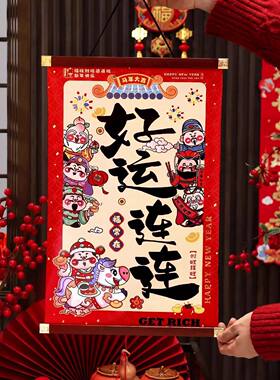 HAPPY NEW YEAR
马年大吉
好运连连
福常在
HAPPY NEW YEAR
GET RICH